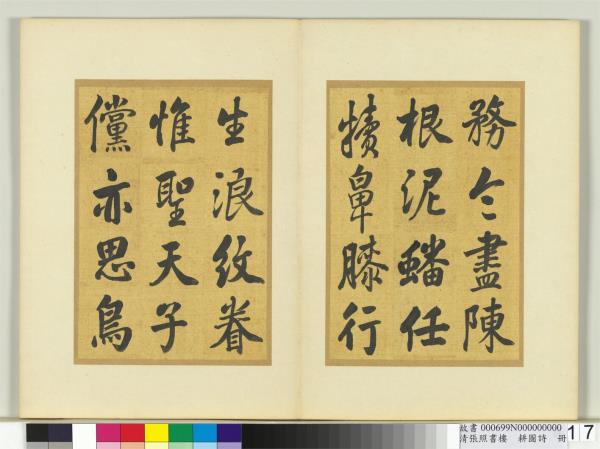 務令盡陳
根泥蟠任
犢鼻膝行
生浪紋眷
惟聖天子
儻亦思鳥
故書 000699N000000000
清張照書樓 耕圖詩 冊
17